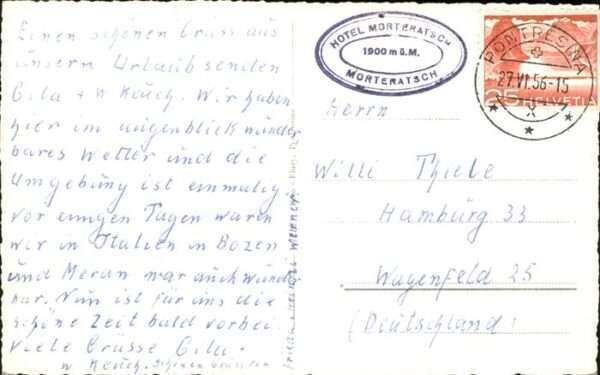 Einen schönen Gruss aus
unserm Urlaub senden
Gila + W Keuch. Wir haben
hier im augenblick wunder
bares Wetter und die
Umgebung ist einmalig
vor einigen Tagen waren
wir in Italien in Bozen
und Meran war auch wunder
bar. Nun ist für uns die
schöne Zeit bald vorbei.
Viele Grusse Gila.
W Keuch.
HOTEL MORTERATSCH
1900 m ü. M.
MORTERATSCH
PONTRESINA
27.VI.56-15
25 HELVETIA
Herrn
Willi Thiele
Hamburg 33
Wagenfeld 25
(Deutschland)